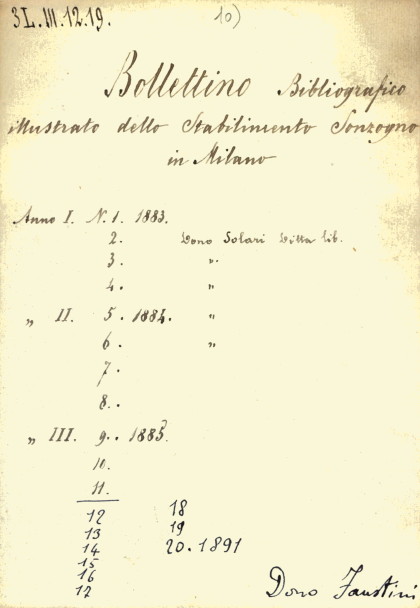 3L.III.12.19. 10)
Bollettino Bibliografico
illustrato dello Stabilimento Sonzogno
in Milano
Anno I. N. 1. 1883.
2. Dono Solari Ditta lib.
3. "
4. "
" II. 5. 1884. "
6. "
7.
8.
" III. 9. 1885.
10.
11.
12 18
13 19
14 20.1891
15
16
17
Dono Faustini